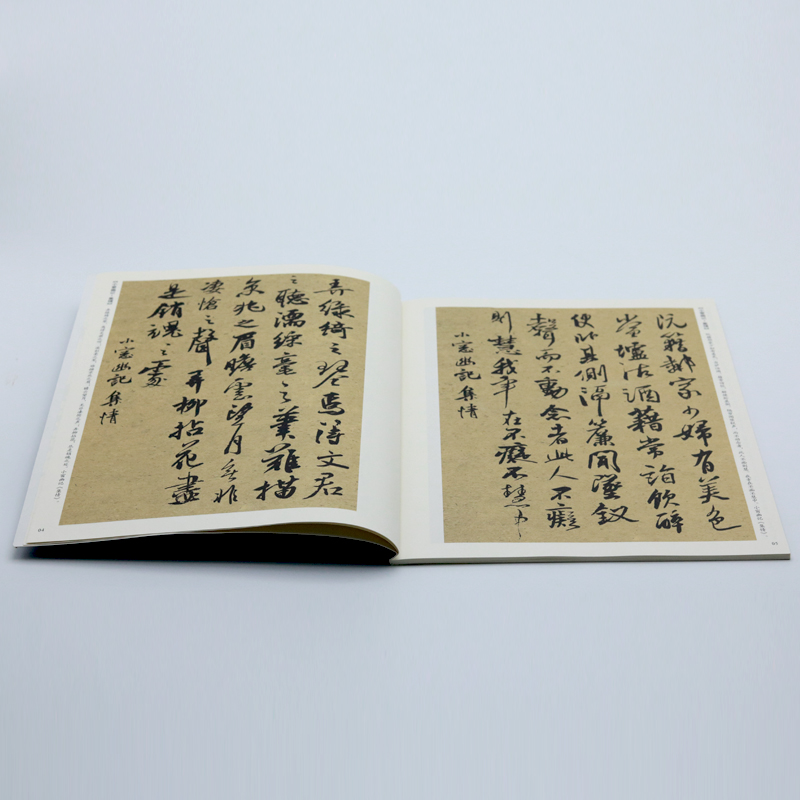 弄綠綺之琴焉得文君
之聽濡綵毫之筆難描
京兆之眉瞻雲望月無非
悽愴之聲弄柳拈花盡
是銷魂之處
小窗幽記集情
阮籍鄰家少婦有美色
當壚沽酒籍常詣飲醉
便臥其側隔簾聞墮釵
聲而不動念者此人不癡
則慧我幸在不癡不慧中
小窗幽記集情